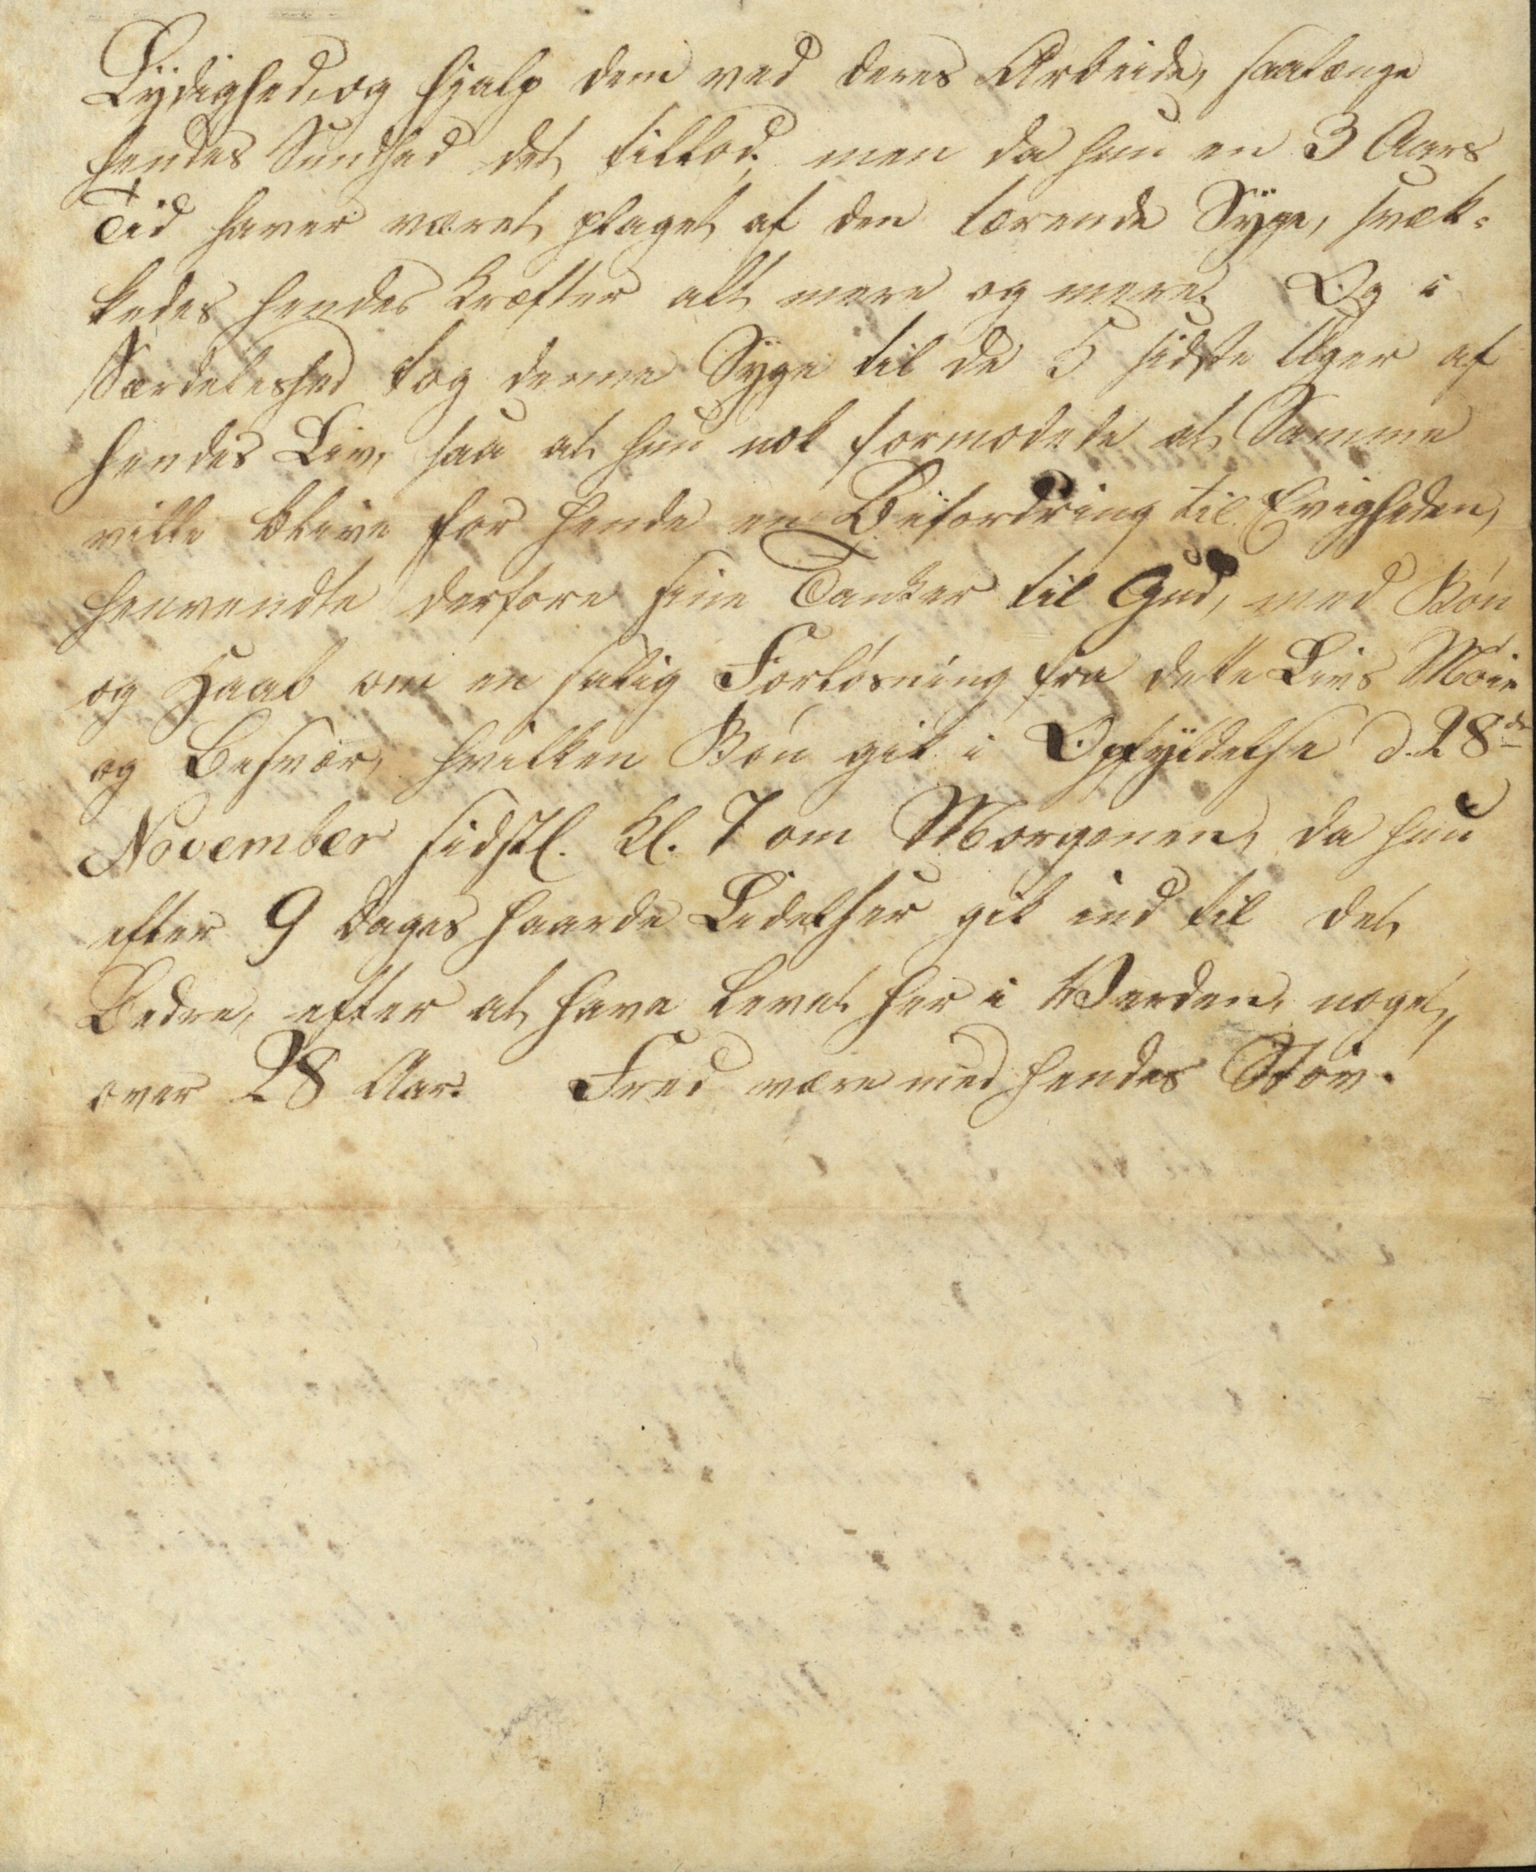 Lydighed, og hjalp dem ved deres Arbeide, saalænge
hendes Sundhed det tillod; men da hun en 3 Aars
Tid haver været plaget af den tærende Syge, svæk-
kedes hendes Kræfter alt mere og mere. Og i
Særdeleshed tog denne Syge til de 5 sidste Uger af
hendes Liv, saa at hun nok formodede at Samme
ville blive for hende en Befordring til Evigheden,
henvendte derfore sine Tanker til Gud, med Bøn
og Haab om en salig Forløsning fra dette Livs Møie
og Besvær, hvilken Bøn gik i Opfyldelse d. 28de
November sidstl. Kl. 7 om Morgenen, da hun
efter 9 Dages haarde Lidelser gik ind til det
Bedre, efter at have levet her i Verden, noget,
over 28 Aar. Fred være med hendes Støv.